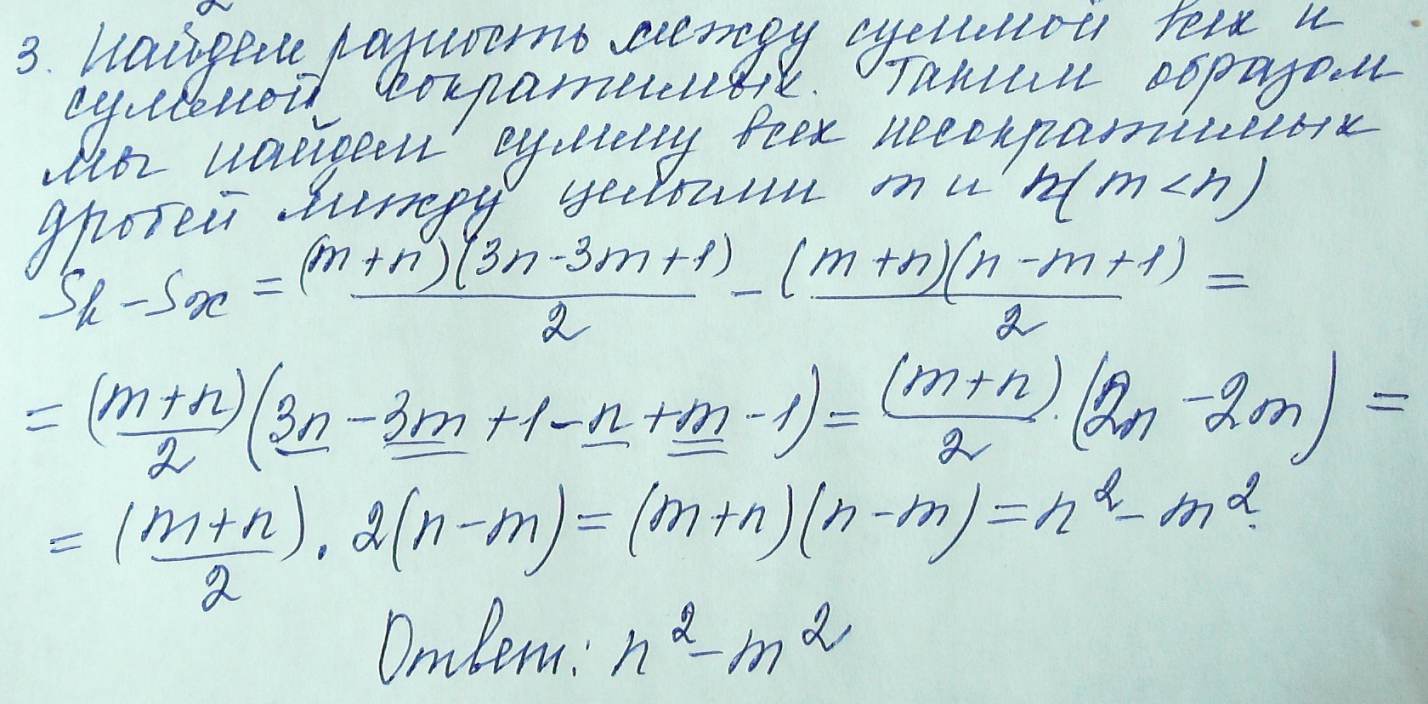 3. Найдем разность между суммой всех и
суммой сократимых. Таким образом
мы найдем сумму всех несократимых
дробей между целыми m и n (m < n)
Sk - Sx = (m+n)(3n-3m+1)/2 - (m+n)(n-m+1)/2 =
= (m+n)/2 (3n - 3m + 1 - n + m - 1) = (m+n)/2 · (2n - 2m) =
= (m+n)/2 · 2(n-m) = (m+n)(n-m) = n² - m².
Ответ: n² - m²